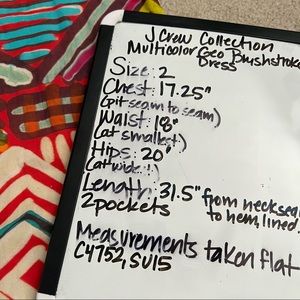 J. Crew Collection
Multicolor Geo Brushstroke
Dress
Size: 2
Chest: 17.25"
(pit seam to seam)
Waist: 18"
(at smallest)
Hips: 20"
(at wide..)
Length: 31.5" from neck seam
2 pockets to hem lined,
Measurements taken flat
C4752, SU15